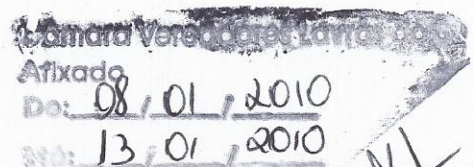 Câmara Vereadores Lavras do Sul
Afixado
Do: 08 / 01 / 2010
Até: 13 / 01 / 2010